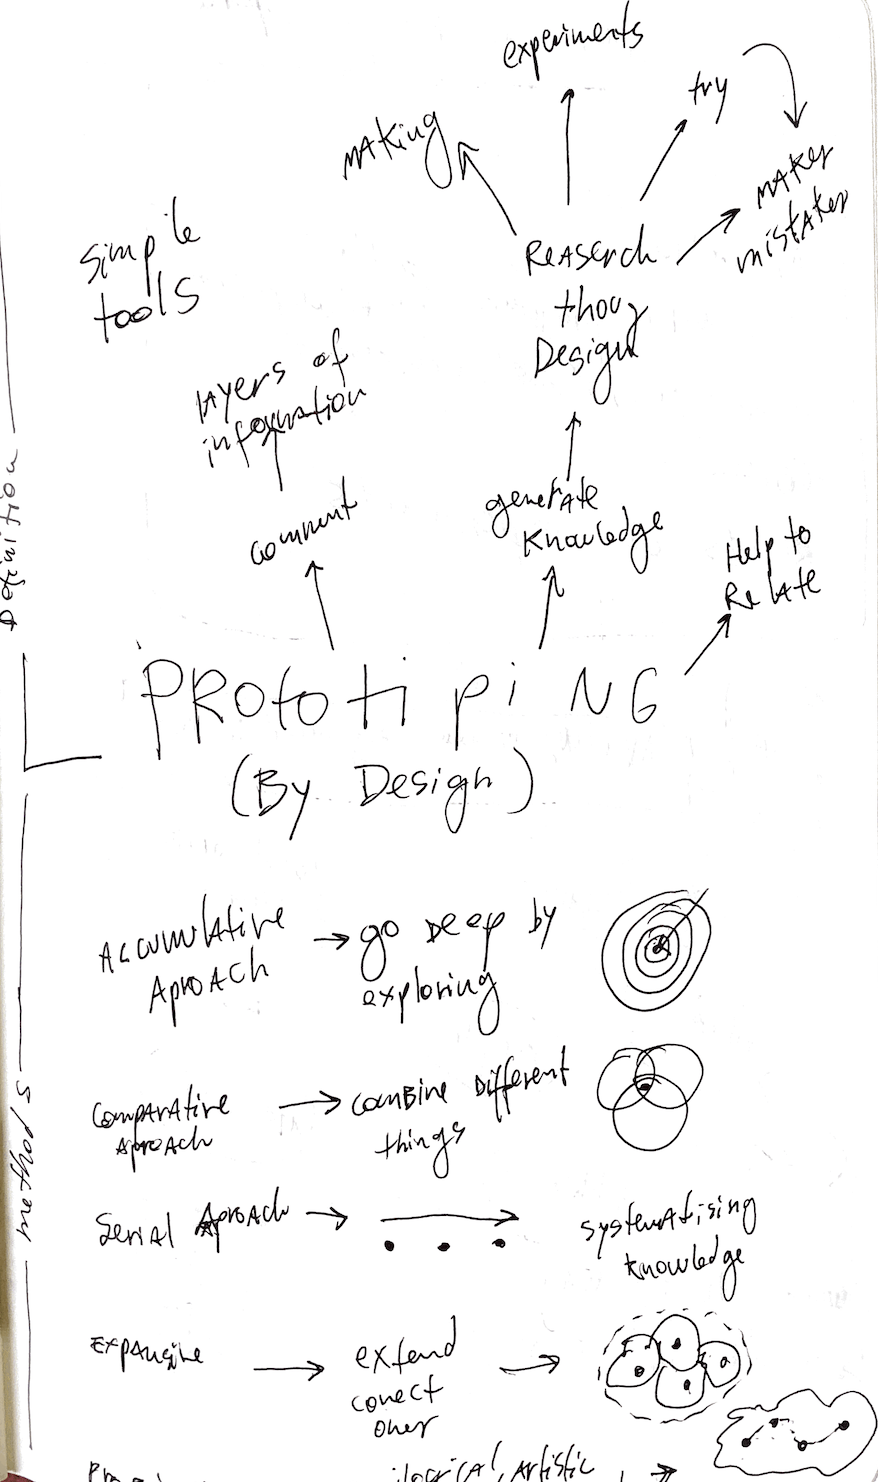 experiments
try
making
maker
mistaker
simple
tools
Reaserch
thoug
Design
layers of
information
comment
generate
knowledge
Help to
Relate
Definition
PROtotipiNG
(By Design)
methods
Accumulative
Aproach
go Deep by
exploring
comparative
aproach
combine Different
things
Serial Aproach
systematising
knowledge
Expansive
extend
conect
over
ilogical, artistic